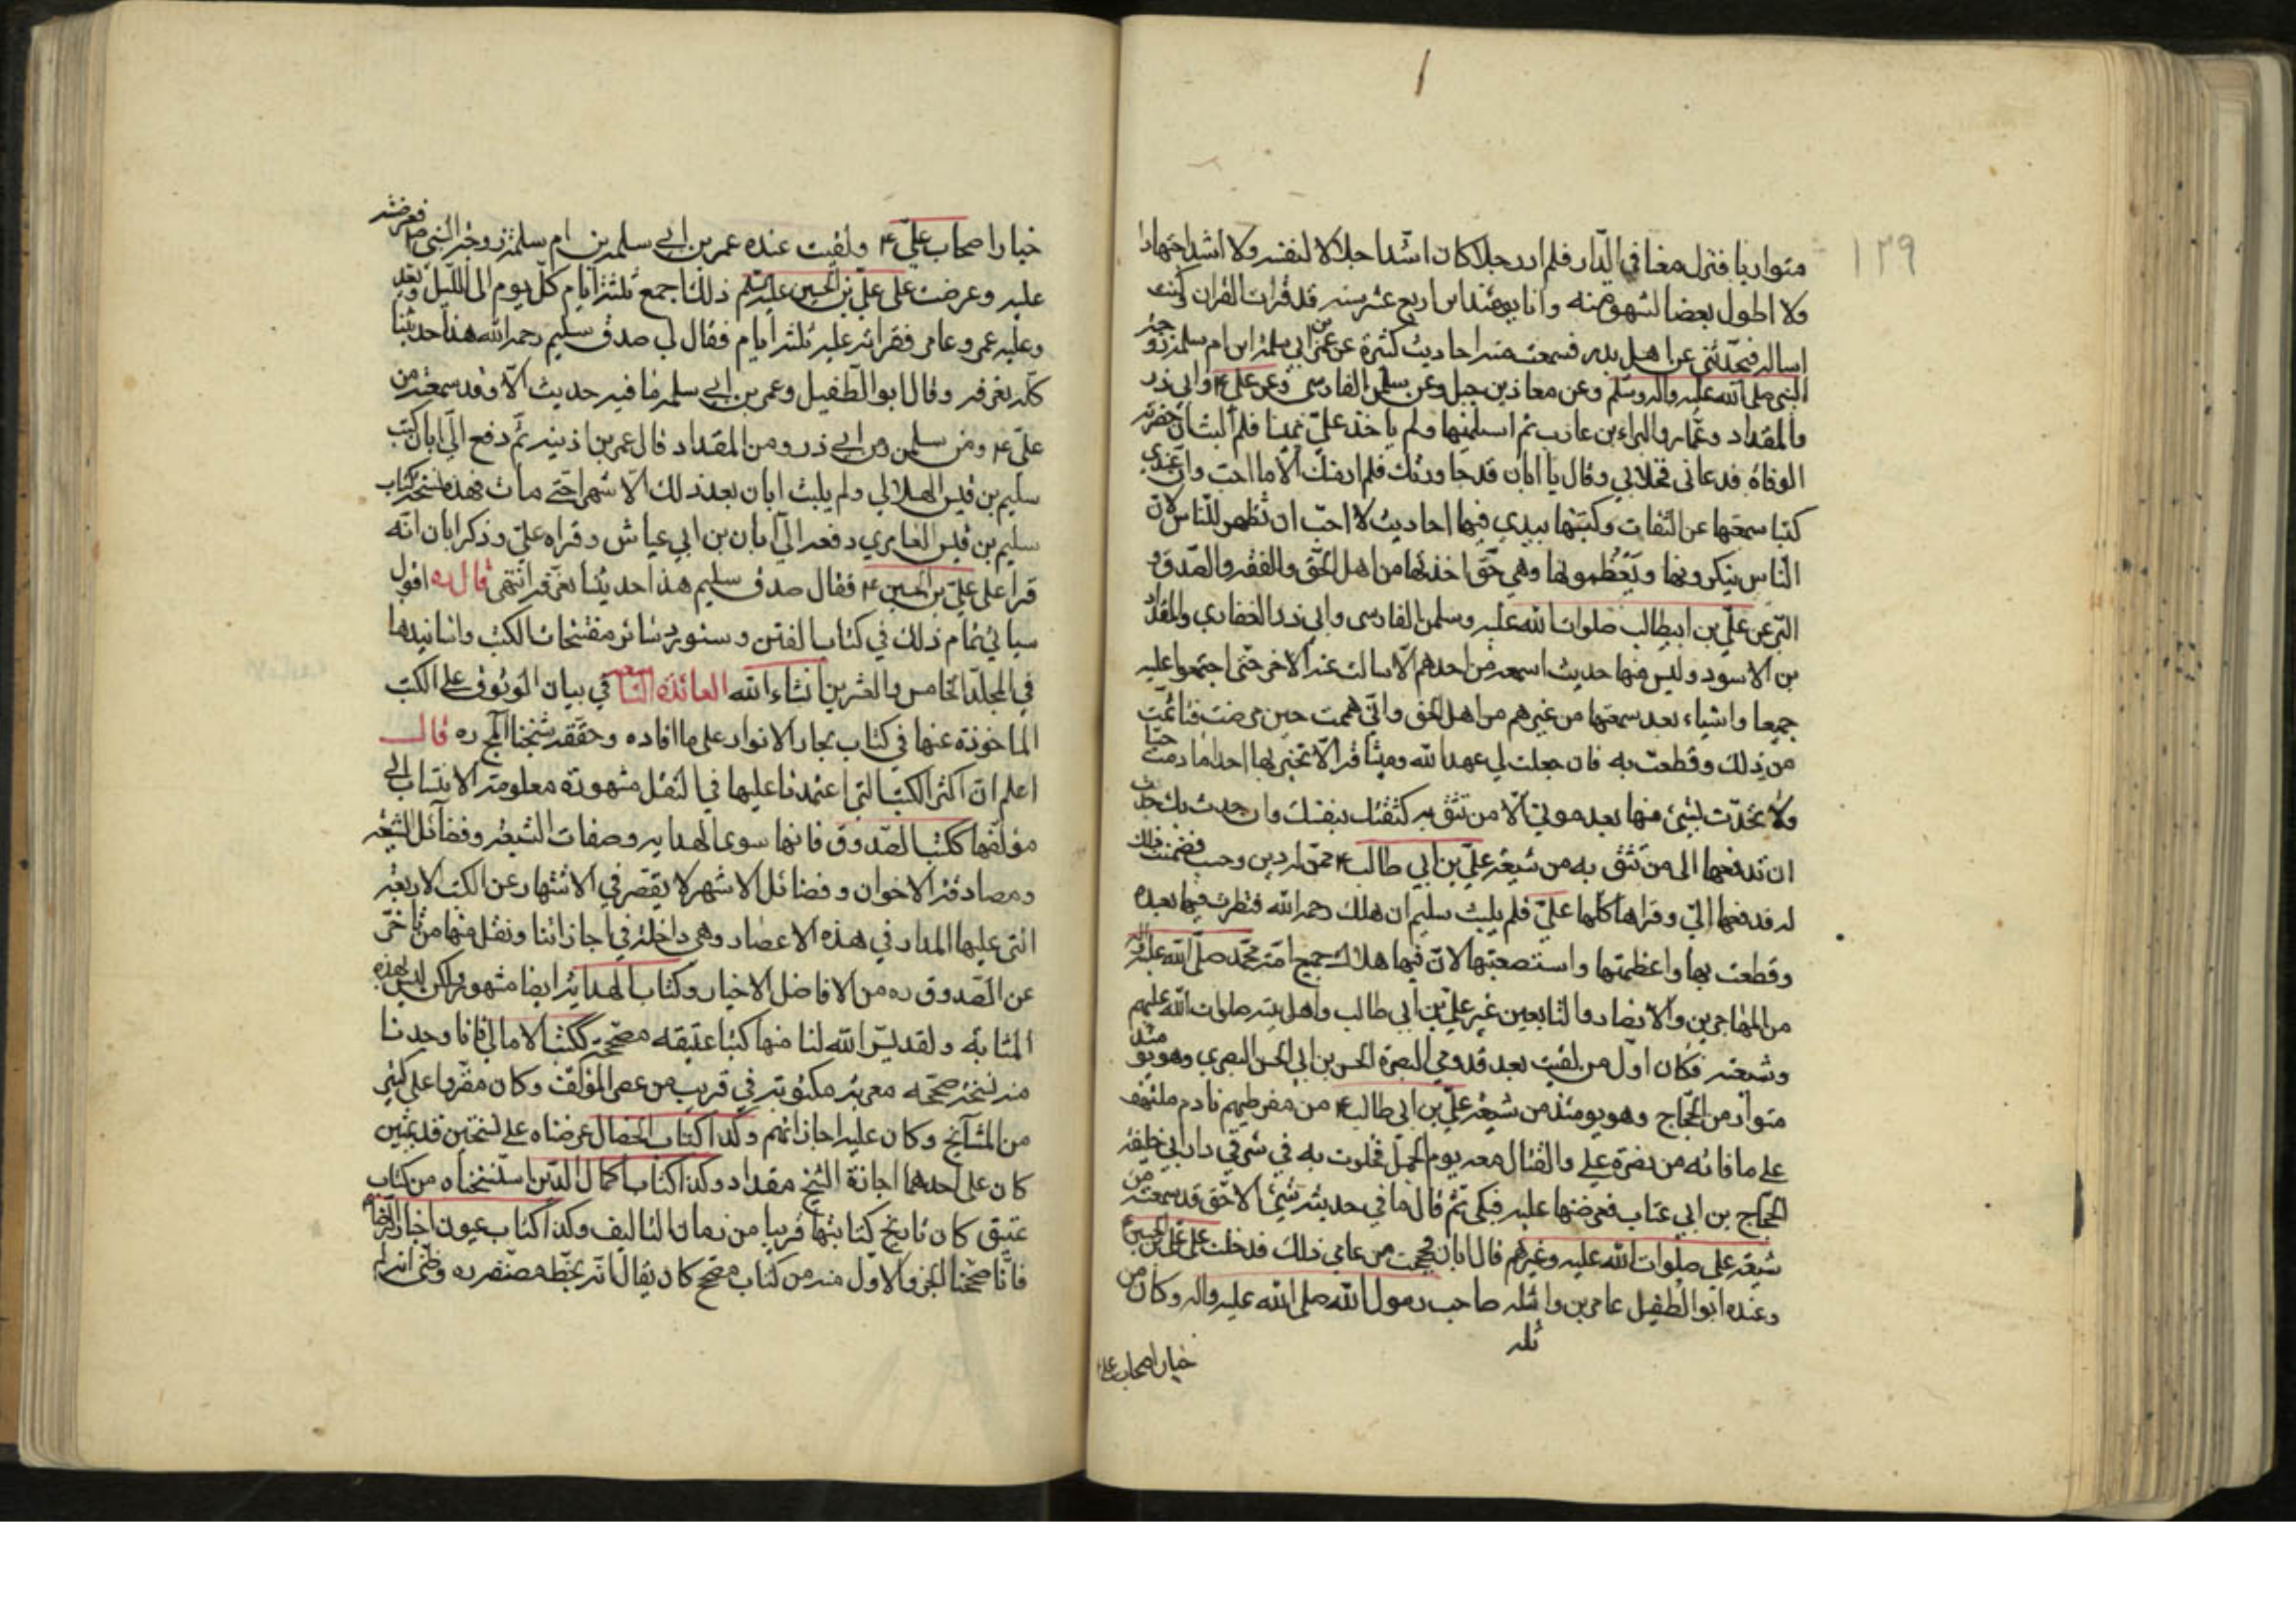 ١٣٩
متواريا فنزل معنا في الدار فلم ار رجلا كان اشد اجلالا لنفسه ولا اشد اجتهادا
ولا اطول بغضا لشهوة منه وانا يومئذ ابن اربع عشر سنه قد قرات القران وكنت
اساله فيحدثني عن اهل بدر فسمعت منه احاديث كثيرة عن عمر بن ابي سلمة ابن ام سلمة زوجة
النبي صلى الله عليه واله وسلم وعن معاذ بن جبل وعن سلمن الفارسي وعن علي ع وابي ذر
والمقداد وعمار والبراء بن عازب ثم اسلمنيها ولم ياخذ علي يمينا فلم البث ان حضرته
الوفاة فدعاني فخلا بي وقال يا ابان قد جاورتك فلم ار منك الا ما احب وان عندي
كتبا سمعتها عن الثقات وكتبتها بيدي فيها احاديث لا احب ان تظهر للناس لان
الناس ينكرونها ويعظمونها وهي حق اخذتها من اهل الحق والفقه والصدق و
البر عن علي بن ابيطالب صلوات الله عليه وسلمن الفارسي وابي ذر الغفاري والمقداد
بن الاسود وليس منها حديث اسمعه من احدهم الا سالت عنه الاخر حتى اجتمعوا عليه
جميعا واشياء بعد سمعتها من غيرهم من اهل الحق واني هممت حين مرضت فتاثمت
من ذلك وقطعت به فان جعلت لي عهد الله وميثاقه الا تخبر بها احدا ما دمت حيا
ولا تحدث بشئ منها بعد موتي الا من تثق به كثقتك بنفسك وان حدث بك حدث
ان تدفعها الى من تثق به من شيعة علي بن ابي طالب ع ممن له دين وحسب فضمنت ذلك
له فدفعها الي وقراها كلها علي فلم يلبث سليم ان هلك رحمه الله فنظرت فيها بعده
وقطعت بها واعظمتها واستصعبتها لان فيها هلاك جميع امة محمد صلى الله عليه واله
من المهاجرين والانصار والتابعين غير علي بن ابي طالب واهل بيته صلوات الله عليهم
وشيعته فكان اول من لقيت بعد قدومي البصرة الحسن بن ابي الحسن البصري وهو يومئذ
متوار من الحجاج وهو يومئذ من شيعة علي بن ابي طالب ع من مفرطيهم نادم متلهف
على ما فاته من نصرة علي والقتال معه يوم الجمل فخلوت به في شرقي دار ابي خليفة
الحجاج بن ابي عتاب فعرضتها عليه فبكى ثم قال ما في حديثه شئ الا حق قد سمعته من
شيعة علي صلوات الله عليه وغيرهم قال ابان فحججت من عامي ذلك فدخلت على علي بن الحسين ع
وعنده ابو الطفيل عامر بن واثله صاحب رسول الله صلى الله عليه واله وكان من
ثله
خيار اصحاب علي ع
خيار اصحاب علي ع ولقيت عنده عمر بن ابي سلمة بن ام سلمة زوجة النبي ص فعرضته
عليه وعرضت على علي بن الحسين عليه السلم ذلك اجمع ثلثة ايام كل يوم الى الليل ويغدو
وعليه عمر وعامر فقراته عليه ثلثة ايام فقال لي صدق سليم رحمه الله هذا حديثنا
كله نعرفه وقال ابو الطفيل وعمر بن ابي سلمه ما فيه حديث الا وقد سمعته من
علي ع ومن سلمن ومن ابي ذر ومن المقداد قال عمر بن اذينه ثم دفع الي ابان كتب
سليم بن قيس الهلالي ولم يلبث ابان بعد ذلك الا شهرا حتى مات فهذه نسخة كتاب
سليم بن قيس العامري دفعه الي ابان بن ابي عياش وقراه علي وذكر ابان انه
قرا على علي بن الحسين ع فقال صدق سليم هذا حديثنا نعرفه انتهى قال ره اقول
سياتي تمام ذلك في كتاب الفتن وسنورد سائر مفتتحات الكتب واسانيدها
في المجلد الخامس والعشرين انشاء الله العائدة التاسعه في بيان الوثوق على الكتب
الماخوذة عنها في كتاب بحار الانوار على ما افاده وحققه شيخنا المج ره قال
اعلم ان اكثر الكتب التي اعتمدنا عليها في النقل مشهورة معلومة الانتساب الى
مؤلفها ككتب الصدوق فانها سوى الهدايه وصفات الشيعة وفضائل الشيعة
ومصادقة الاخوان وفضائل الاشهر لا يقصر في الاشتهار عن الكتب الاربعة
التي عليها المدار في هذه الاعصار وهي داخلة في اجازاتنا ونقل منها من تاخر
عن الصدوق ره من الافاضل الاخيار وكتاب الهداية ايضا مشهورة ولكن ليس بهذه
المثابه ولقد يسر الله لنا منها كتبا عتيقه مصححة ككتاب الامالي فانا وجدنا
منه نسخة مصححه معربة مكتوبة في قريب من عصر المؤلف وكان مقروا على كثير
من المشايخ وكان عليه اجازاتهم وكذا كتاب الخصال عرضناه على نسختين قديمتين
كان على احدهما اجازة الشيخ مقداد وكذا كتاب اكمال الدين استنسخناه من كتاب
عتيق كان تاريخ كتابتها قريبا من زمان التاليف وكذا كتاب عيون اخبار الرضا ع
فانا صححنا الجزو الاول منه من كتاب مصحح كان يقال انه بخط مصنفه ره وظني انه لم